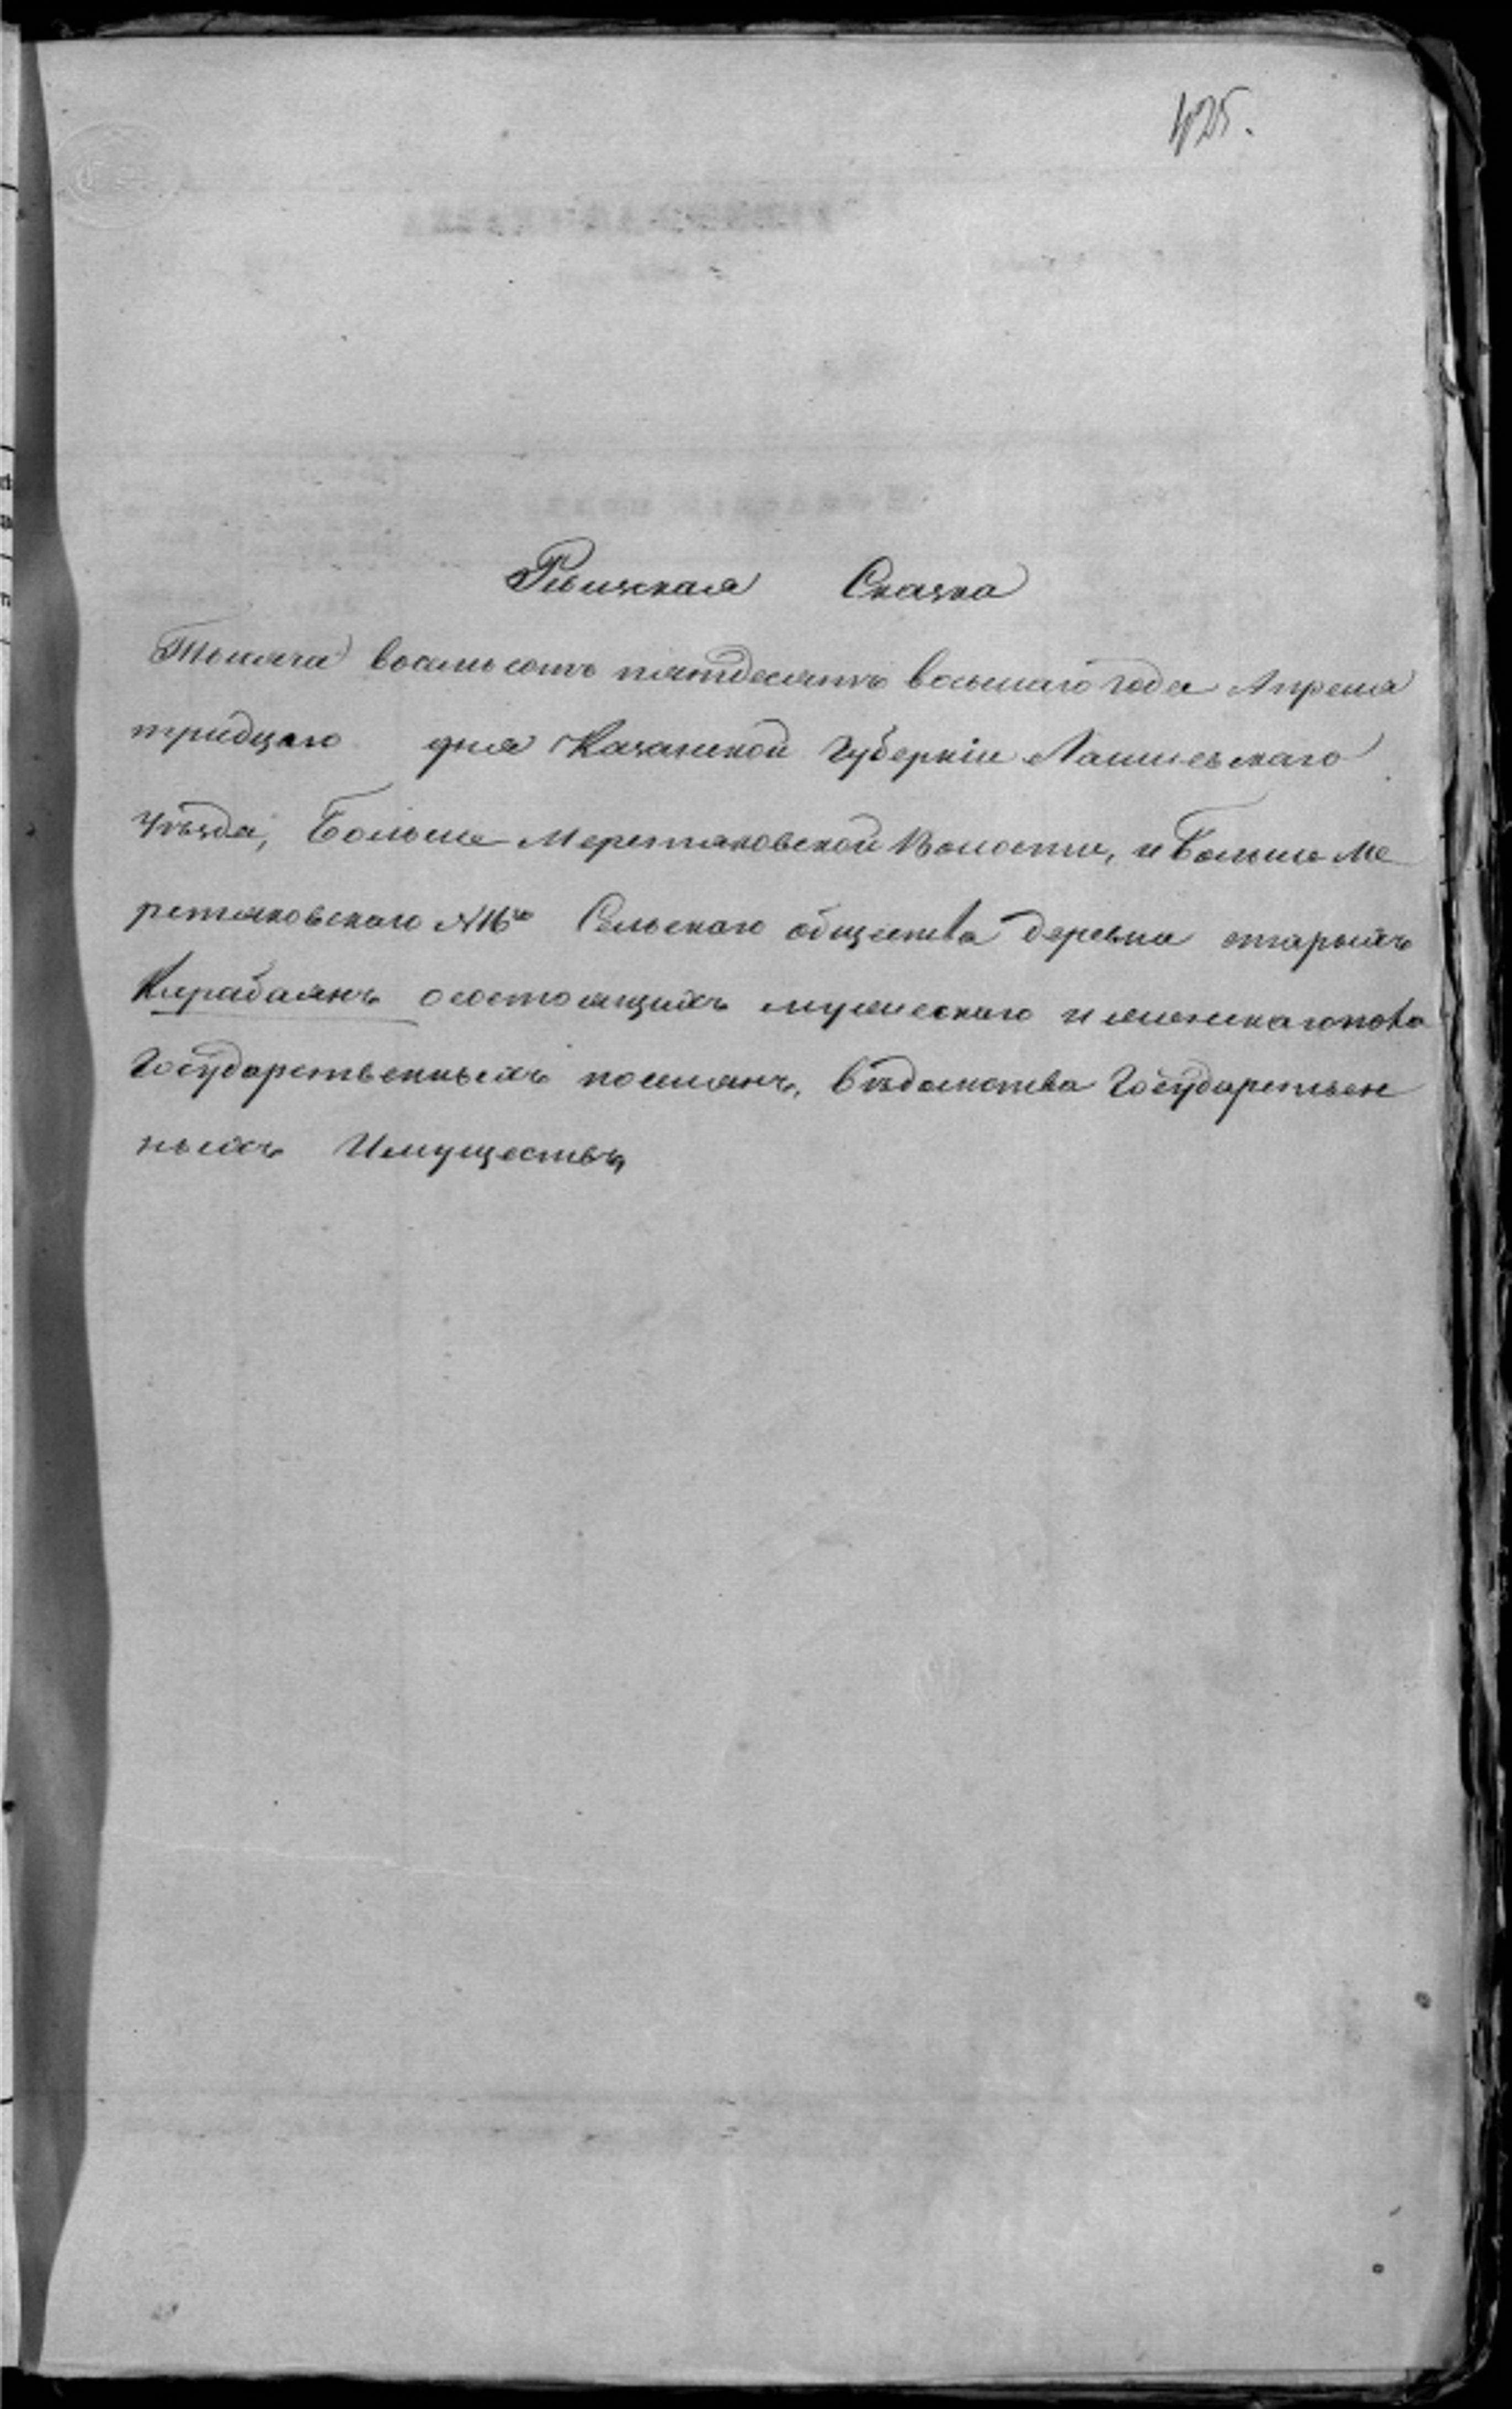 425.
Ревизская Сказка
Тысяча восемьсотъ пятдесятъ восьмаго года Апреля
тридцаго дня Казанской Губерніи Лаишевскаго
Уѣзда, Больше Меретяковской Волости, и Больше Ме
ретяковскаго № 16го Сельскаго общества деревни старыхъ
Карабаянъ о состоящихъ мужескаго и женскаго пола
Государственныхъ поселянъ, вѣдомства Государствен
ныхъ Имуществъ